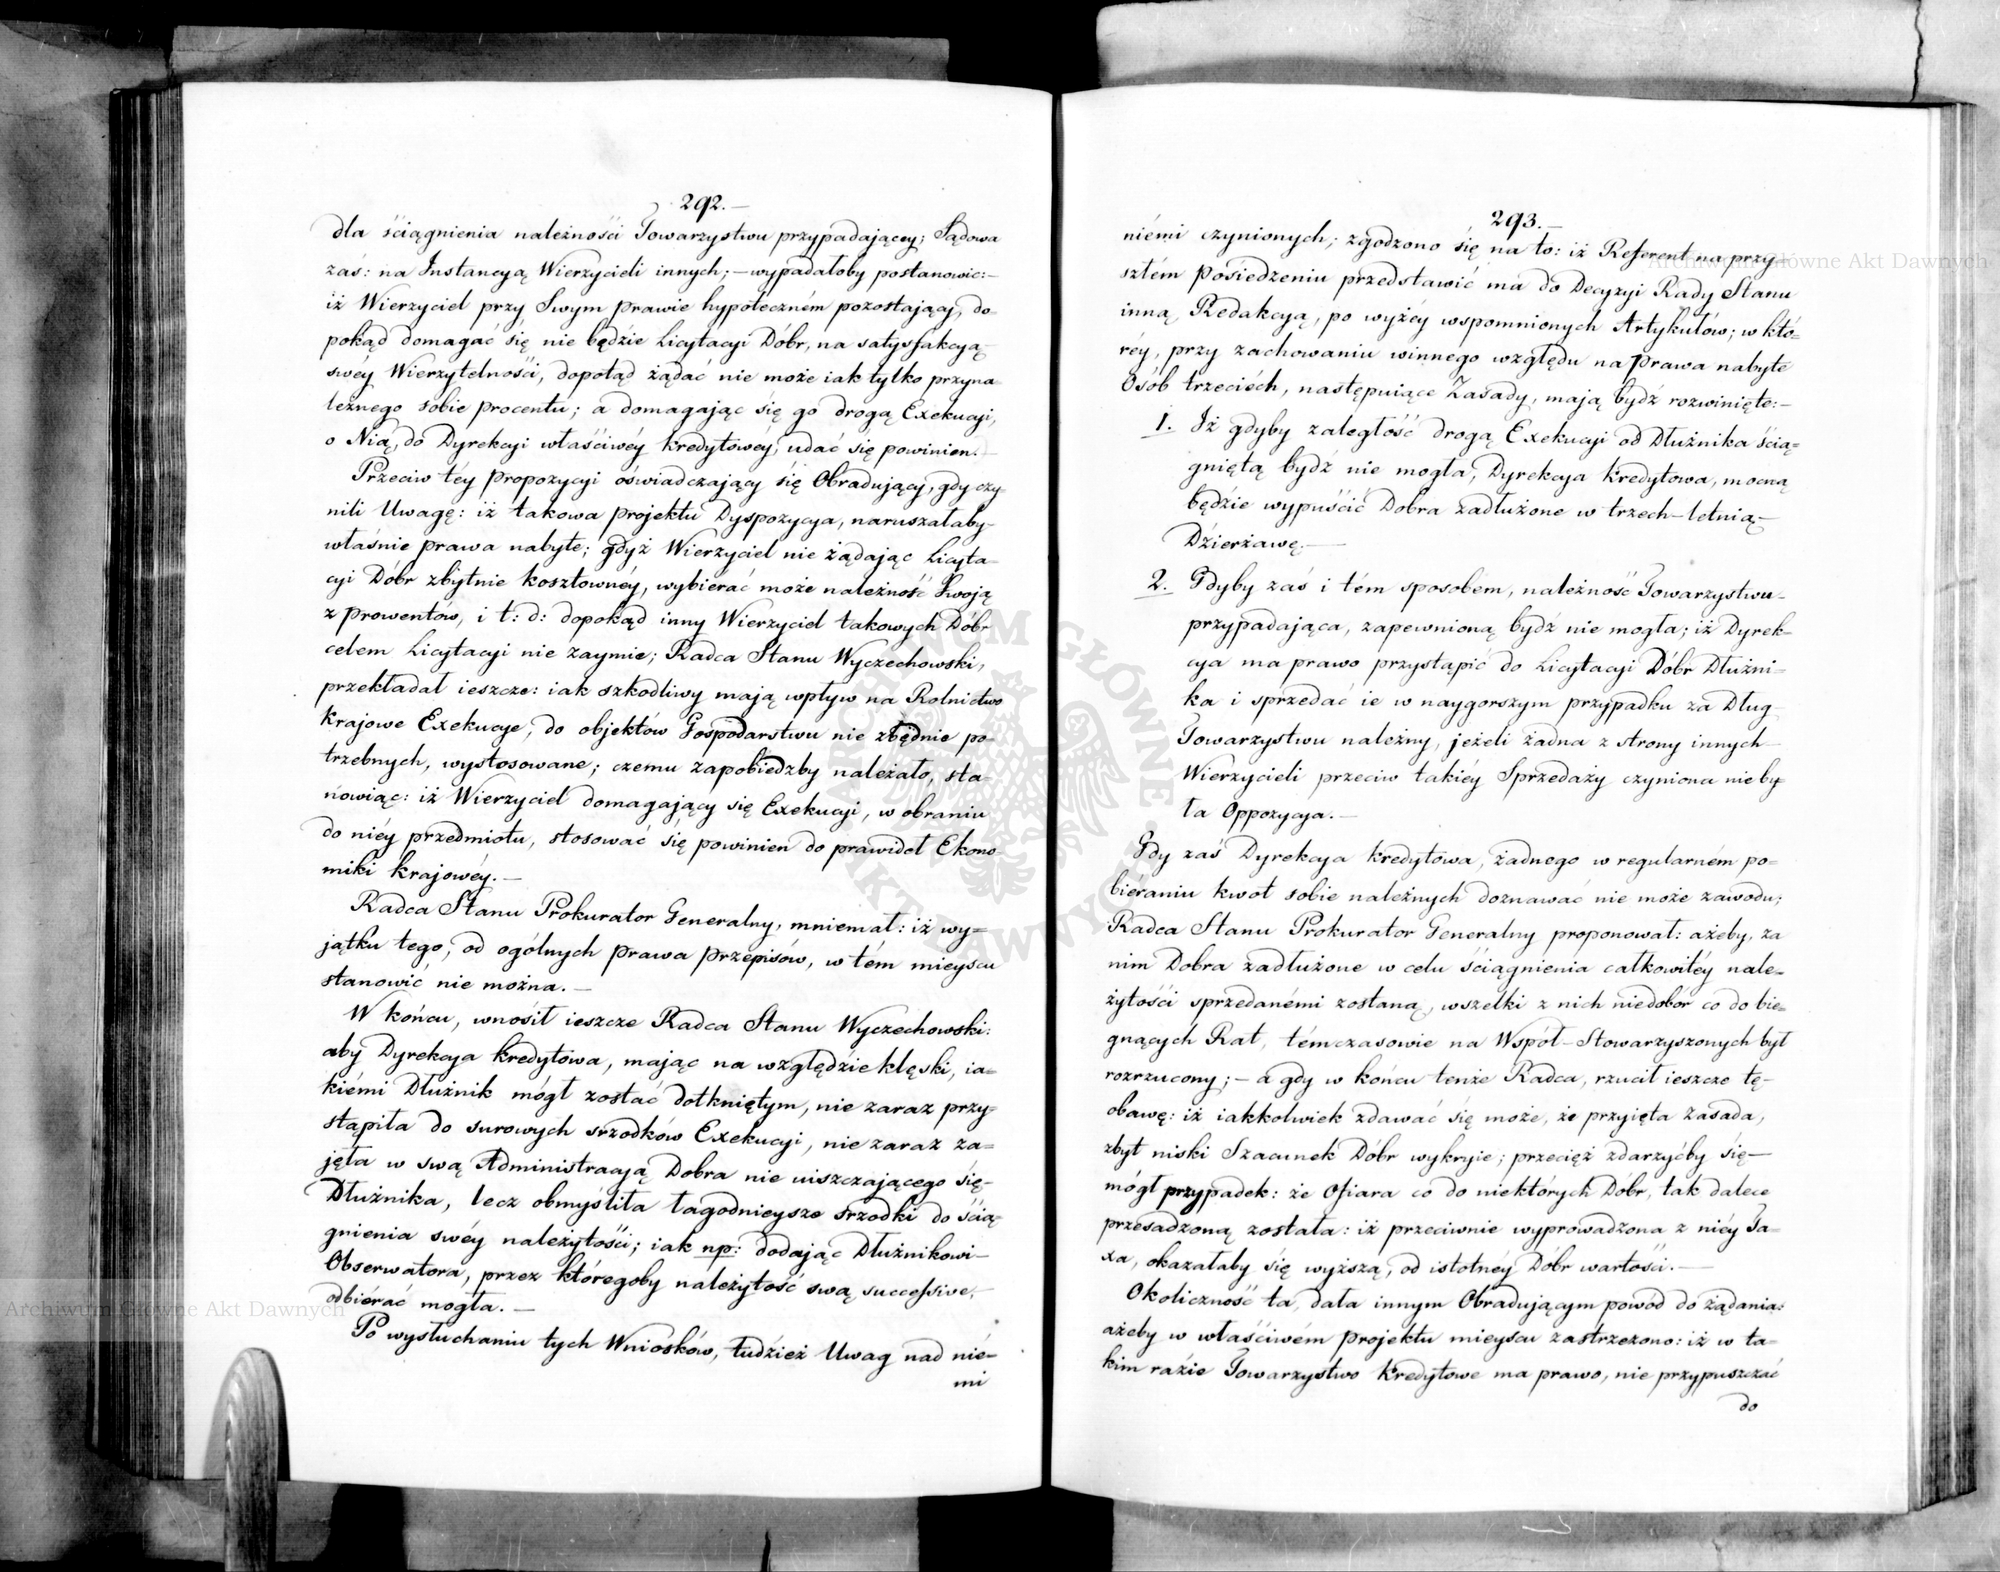 292.
dla ściągnienia należności Towarzystwu przypadającey; Sądowa
zaś: na Instancyą Wierzycieli innych; — wypadałoby postanowić: —
iż Wierzyciel przy Swym prawie hypoteczném pozostający, do-
pokąd domagać się nie będzie Licytacyi Dóbr, na satysfakcyą
swéy Wierzytelności, dopotąd żądać nie może iak tylko przyna-
leżnego sobie procentu; a domagając się go drogą Exekucyi,
o Nią, do Dyrekcyi właściwéy kredytowéy, udać się powinien. —
Przeciw téy propozycyi oświadczający się Obradujący, gdy czy-
nili Uwagę: iż takowa projektu Dyspozycya, naruszałaby-
właśnie prawa nabyte; gdyż Wierzyciel nie żądając Licyta-
cyi Dóbr zbytnie kosztownéy, wybierać może należność Swoją
z prowentów, i t: d: dopokąd inny Wierzyciel takowych Dóbr
celem Licytacyi nie zaymie; Radca Stanu Wyczechowski,
przekładał ieszcze: iak szkodliwy mają wpływ na Rolnictwo
krajowe Exekucye, do objektów Gospodarstwu nie zbędnie po-
trzebnych, wystosowane; czemu zapobiedzby należało, sta-
nowiąc: iż Wierzyciel domagający się Exekucyi, w obraniu
do niéy przedmiotu, stosować się powinien do prawideł Ekono-
miki krajowéy. —
Radca Stanu Prokurator Generalny, mniemał: iż wy-
jątku tego, od ogólnych prawa przepisów, w tém mieyscu
stanowić nie można. —
W końcu, wnosił ieszcze Radca Stanu Wyczechowski:
aby Dyrekcya kredytowa, mając na względzie klęski, ia-
kiémi Dłużnik mógł zostać dotkniętym, nie zaraz przy-
stąpiła do surowych srzodków Exekucyi, nie zaraz za-
jęła w swą Administracyą Dobra nie uiszczającego się-
Dłużnika, lecz obmyśliła łagodnieysze srzodki do ścią-
gnienia swéy należytości; iak np: dodając Dłużnikowi-
Obserwatora, przez któregoby należytość swą successive,
odbierać mogła. —
Po wysłuchaniu tych Wniosków, tudzież Uwag nad nié-
mi
293.
niémi czynionych, zgodzono się na to: iż Referent na przy-
szłém posiedzeniu przedstawić ma do Decyzyi Rady Stanu
inną Redakcyą, po wyżéy wspomnionych Artykułów; w któ-
réy, przy zachowaniu winnego względu na prawa nabyte
Osób trzeciéch, następuiące Zasady, mają bydź rozwinięte: —
1. Iż gdyby zaległość drogą Exekucyi od Dłużnika ścią-
gniętą bydź nie mogła, Dyrekcya kredytowa, mocną
będzie wypuścić Dobra zadłużone w trzech-letnią-
Dzierżawę. —
2. Gdyby zaś i tém sposobem, należność Towarzystwu-
przypadająca, zapewnioną bydź nie mogła; iż Dyrek-
cya ma prawo przystąpić do Licytacyi Dóbr Dłużni-
ka i sprzedać ie w naygorszym przypadku za Dług
Towarzystwu należny, jeżeli żadna z strony innych-
Wierzycieli przeciw takiéy Sprzedaży czyniona nie by-
ła Oppozycya. —
Gdy zaś Dyrekcya kredytowa, żadnego w regularném po-
biéraniu kwot sobie należnych doznawać nie może zawodu;
Radca Stanu Prokurator Generalny proponował: ażeby, za
nim Dobra zadłużone w celu ściągnienia całkowitéy nale-
żytości sprzedanémi zostaną, wszelki z nich niedobór co do bie-
gnących Rat, tém czasowie na Współ-Stowarzyszonych był
rozrzucony; — a gdy w końcu tenże Radca, rzucił ieszcze tę-
obawę: iż iakkolwiek zdawać się może, że przyięta zasada,
zbyt niski Szacunek Dóbr wykryie; przecięż zdarzyćby się-
mógł przypadek: że Ofiara co do niektórych Dóbr, tak dalece
przesadzoną została: iż przeciwnie wyprowadzona z niéy Ta-
xa, okazałaby się wyższą, od istotnéy Dóbr wartości. —
Okoliczność ta, dała innym Obradującym powód do żądania:
ażeby w właściwém projektu mieyscu zastrzeżono: iż w ta-
kim razie Towarzystwo kredytowe ma prawo, nie przypuszczać
do
Archiwum Główne Akt Dawnych
Archiwum Główne Akt Dawnych
ARCHIWUM GŁÓWNE AKT DAWNYCH